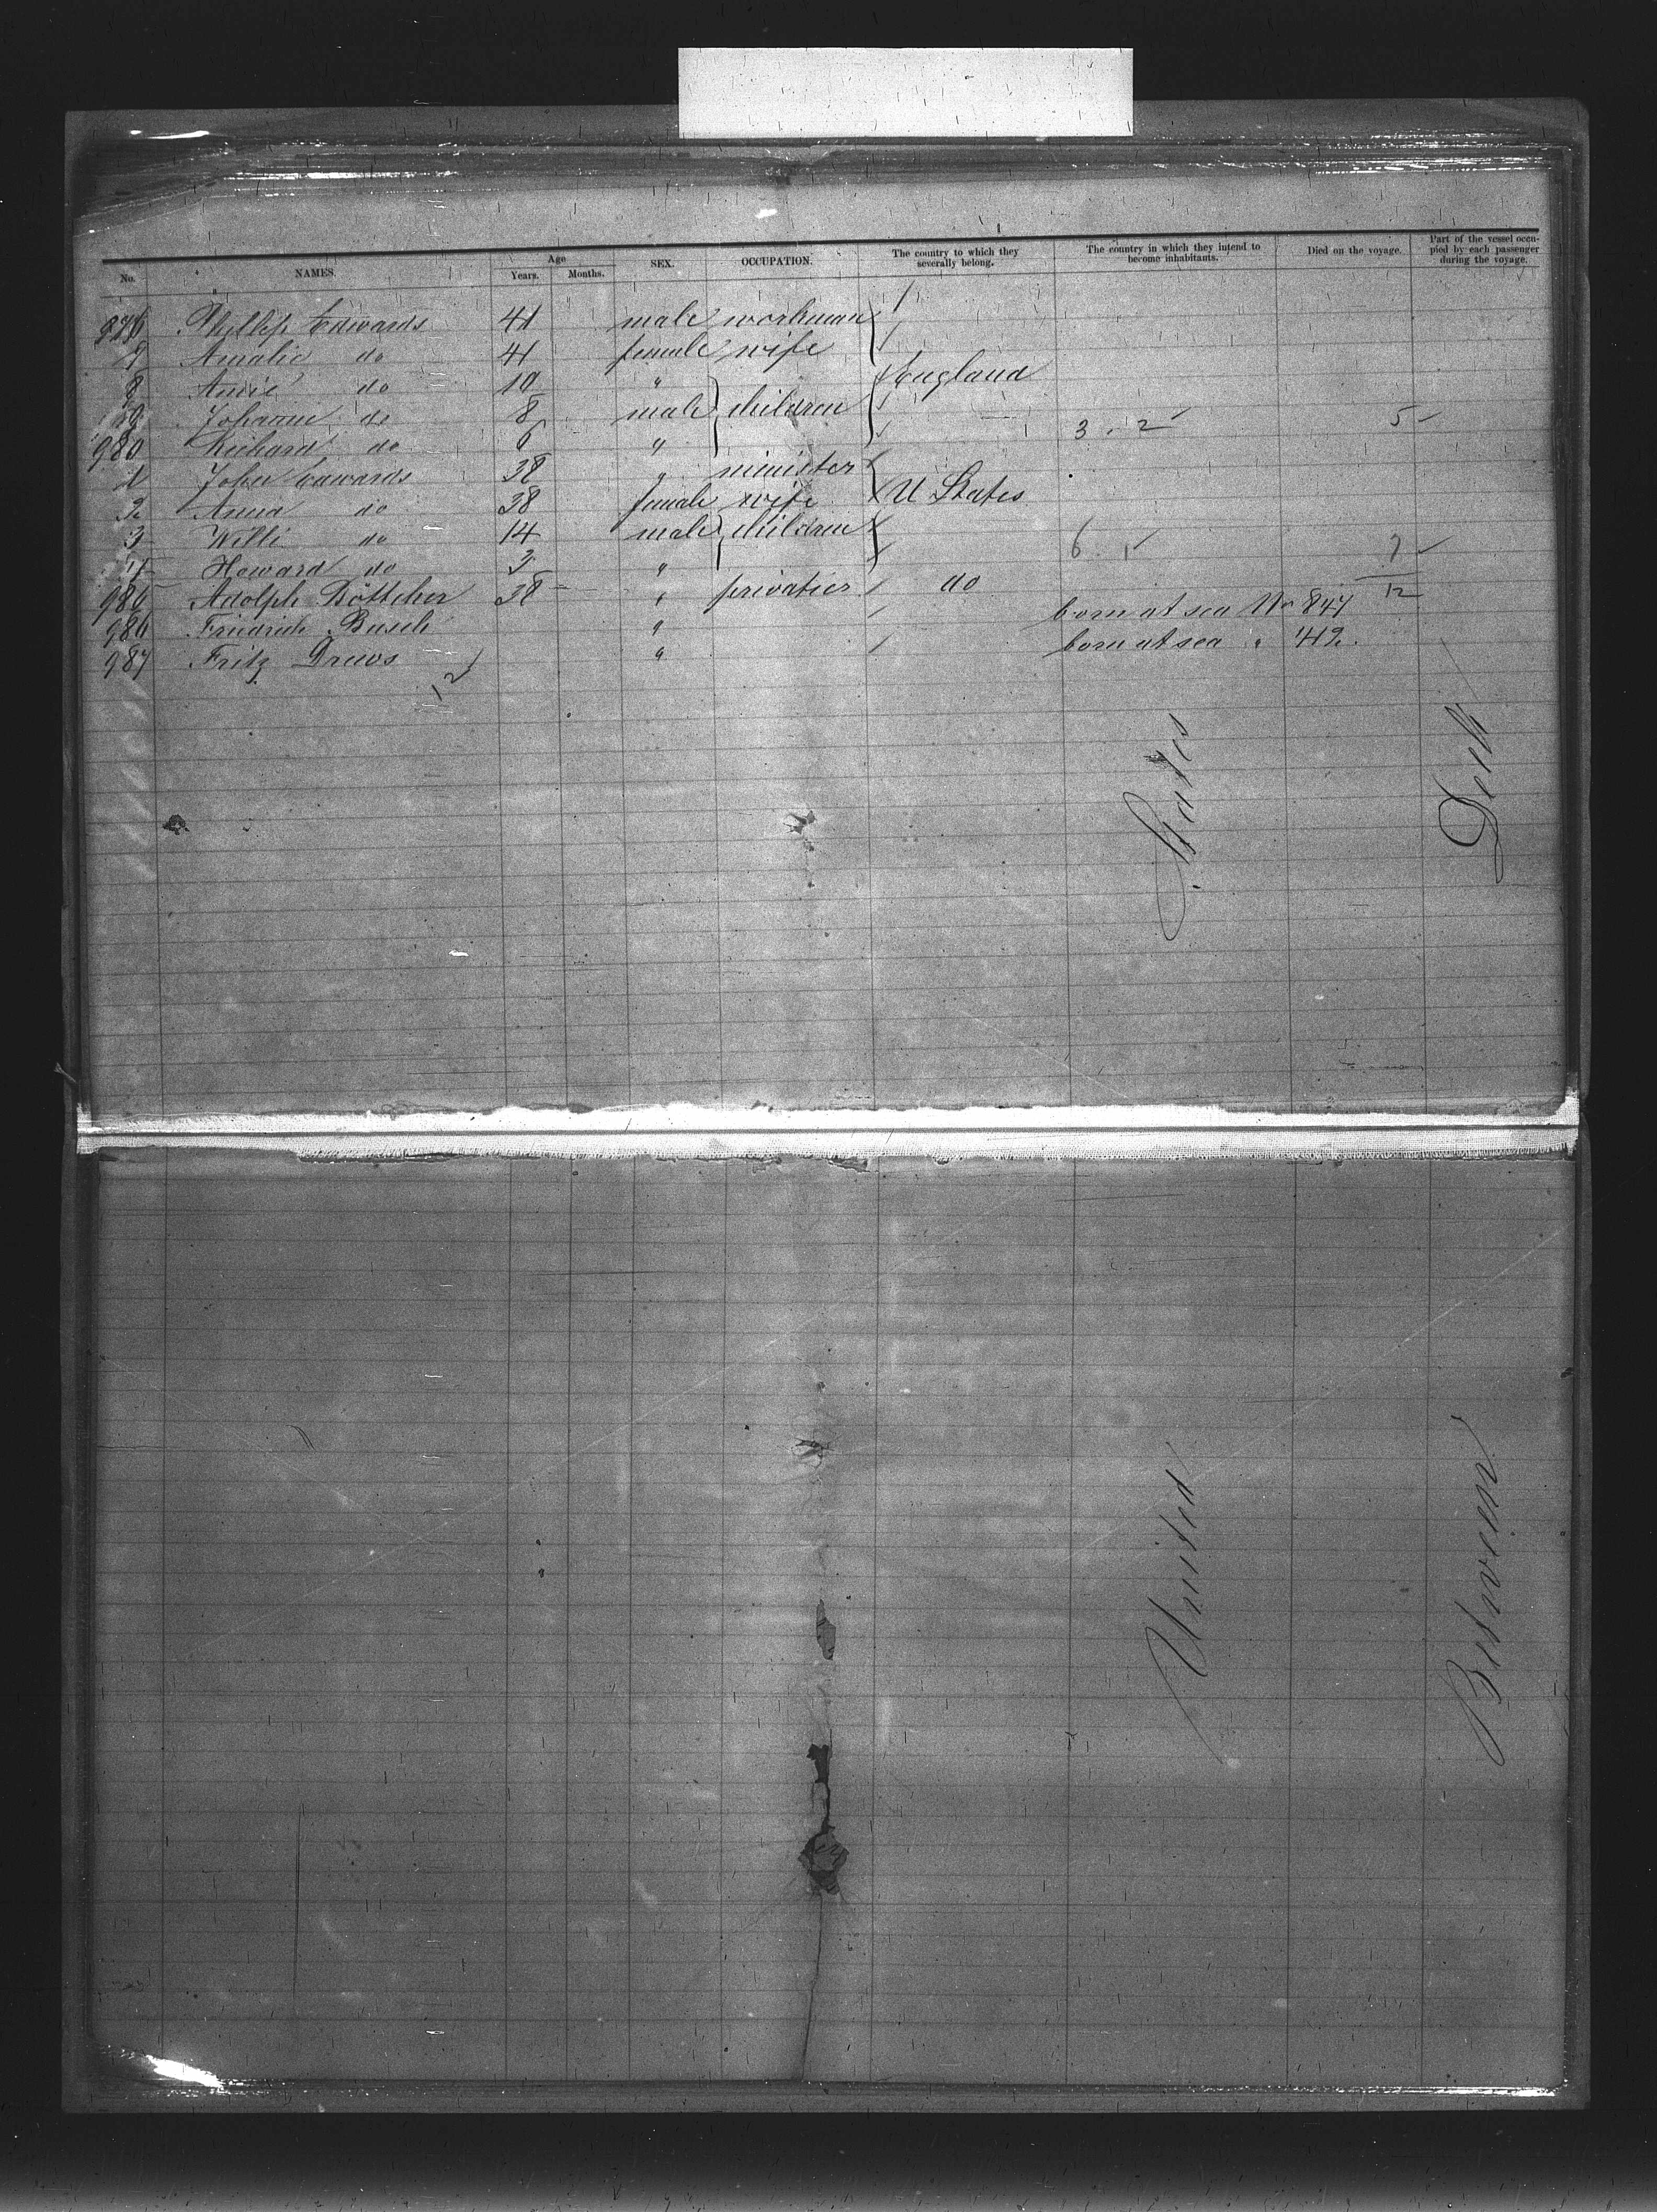 No. NAMES. Age Years. Months. SEX. OCCUPATION. The country to which they severally belong. The country in which they intend to become inhabitants. Died on the voyage. Part of the vessel occupied by each passenger during the voyage.
976 Phillip Edwards 41 male workman
7 Amalie do 41 female wife
8 Anie do 10 " England
9 Johann do 8 male children 3 . 2 5
980 Richard do 6 "
1 John Edwards 38 " minister
2 Anna do 38 female wife U States
3 Willi do 14 male children 6 . 1 7
4 Howard do 3 "
985 Adolph Böttcher 38 " privatier do 12
986 Friedrich Busch " born at sea No 847
987 Fritz Drews " born at sea " 412.
12
United States
Between Deck